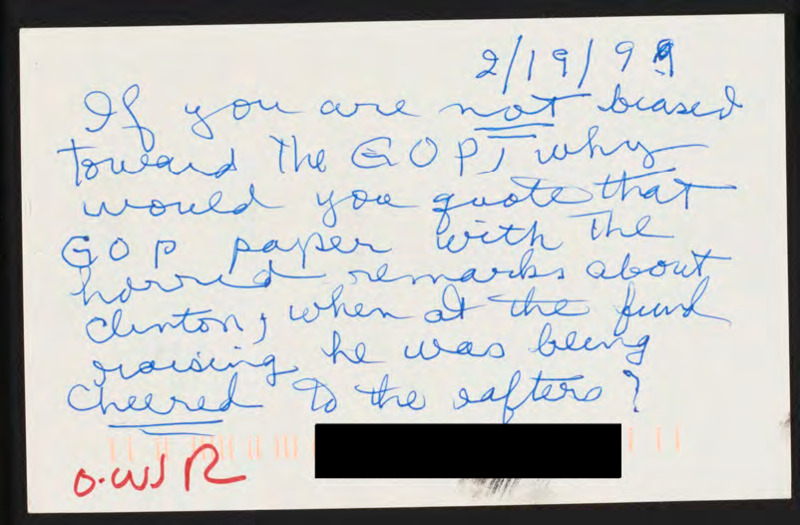 2/19/99
If you are not biased
toward the GOP, why
would you quote that
GOP paper with the
horrid remarks about
Clinton, when at the fund
raising he was being
cheered to the rafters?
O-WSR